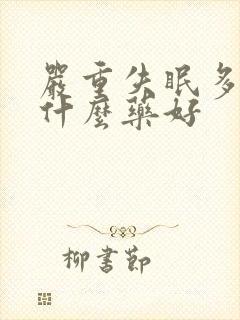 嚴重失眠多
什麼藥好
柳書節